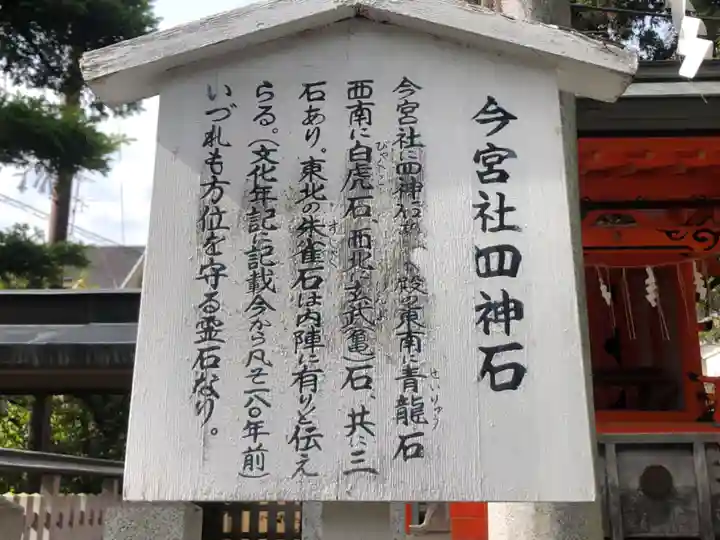 今宮社四神石
今宮社に四神石あり、殿の東南に青龍石
せいりゅう
西南に白虎石、西北に玄武(亀)石、共に三
びゃっこ
げんぶ
石あり。東北の朱雀石は内陣に有りと伝え
すざく
らる。(文化年記に記載今から凡そ二八〇年前)
いづれも方位を守る霊石なり。